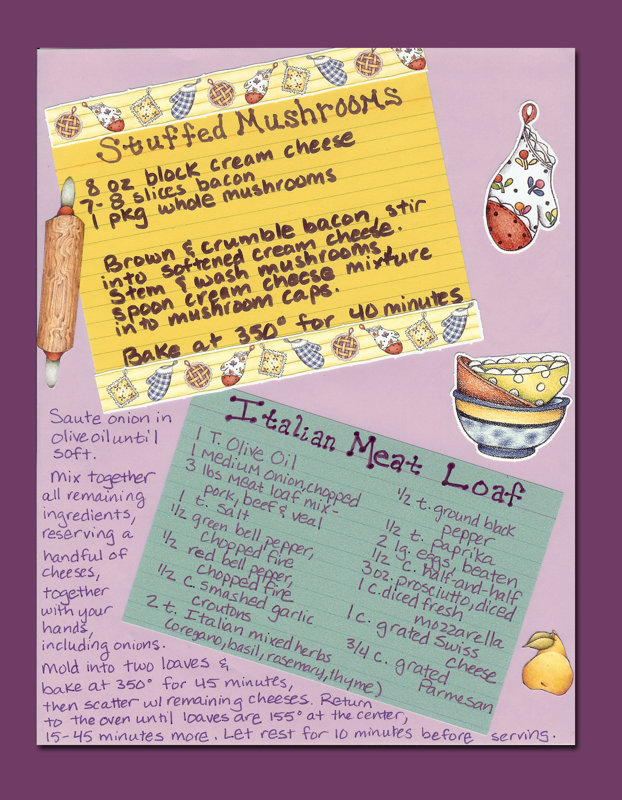 Stuffed Mushrooms
8 oz block cream cheese
7-8 slices bacon
1 pkg whole mushrooms
Brown & crumble bacon, stir
into softened cream cheese.
Stem & wash mushrooms,
spoon cream cheese mixture
into mushroom caps.
Bake at 350° for 40 minutes
Italian Meat Loaf
1 T. Olive Oil
1 Medium Onion, chopped
3 lbs Meat loaf mix-
pork, beef & veal
1 t. salt
1/2 green bell pepper,
chopped fine
1/2 red bell pepper,
chopped fine
1/2 c. smashed garlic
croutons
2 t. Italian mixed herbs
(oregano, basil, rosemary, thyme)
1/2 t. ground black
pepper
1/2 t. paprika
2 lg. eggs, beaten
1/2 c. half-and-half
3 oz. prosciutto, diced
1 c. diced fresh
mozzarella
1 c. grated Swiss
cheese
3/4 c. grated
Parmesan
Saute onion in
olive oil until
soft.
Mix together
all remaining
ingredients,
reserving a
handful of
cheeses,
together
with your
hands,
including onions.
Mold into two loaves &
bake at 350° for 45 minutes,
then scatter w/ remaining cheeses. Return
to the oven until loaves are 155° at the center,
15-45 minutes more. Let rest for 10 minutes before serving.